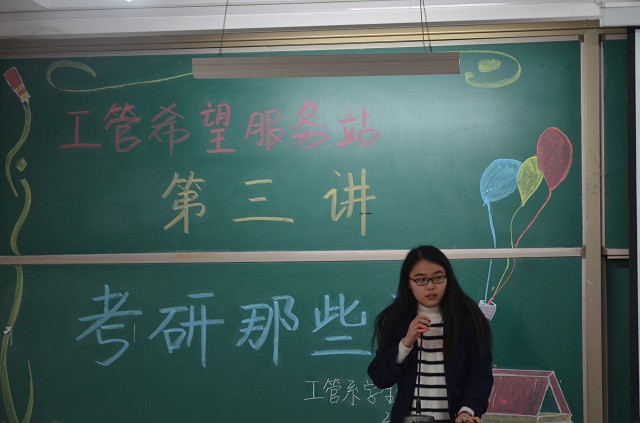 工管希望服务站
第三讲
考研那些
工管系学生